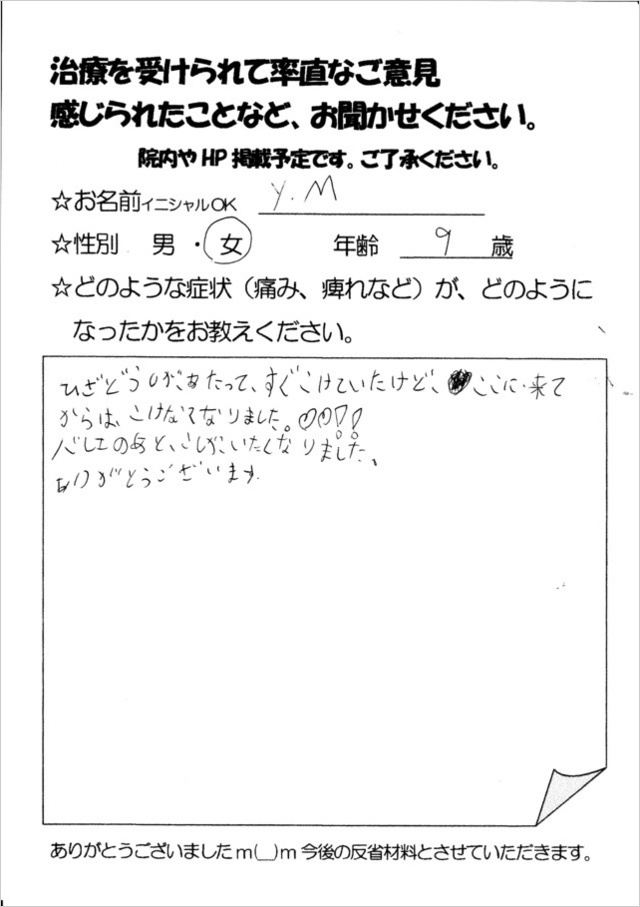 治療を受けられて率直なご意見
感じられたことなど、お聞かせください。
院内や HP 掲載予定です。ご了承ください。
☆お名前イニシャルOK Y.M
☆性別 男・女 年齢 9 歳
☆どのような症状（痛み、痺れなど）が、どのように
なったかをお教えください。
ひざどうしがあたって、すぐこけていたけど、ここに来て
からは、こけなくなりました。♡♡!!
バレエのあと、こしがいたくなりました。
ありがとうございます
ありがとうございましたm(__)m今後の反省材料とさせていただきます。